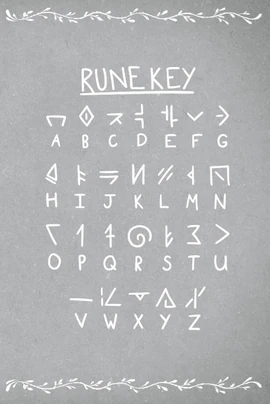 RUNE KEY
A B C D E F G
H I J K L M N
O P Q R S T U
V W X Y Z